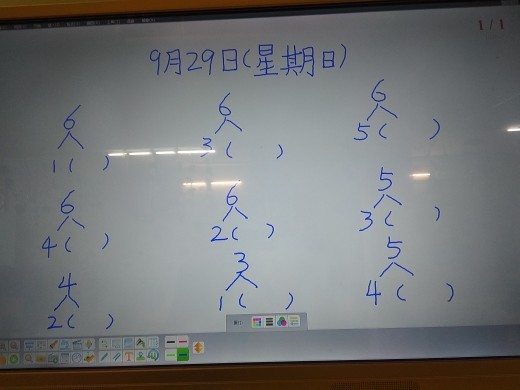 1/1
9月29日(星期日)
6 6 6
1( ) 3( ) 5( )
6 6 5
4( ) 2( ) 3( )
4 3 5
2( ) 1( ) 4( )